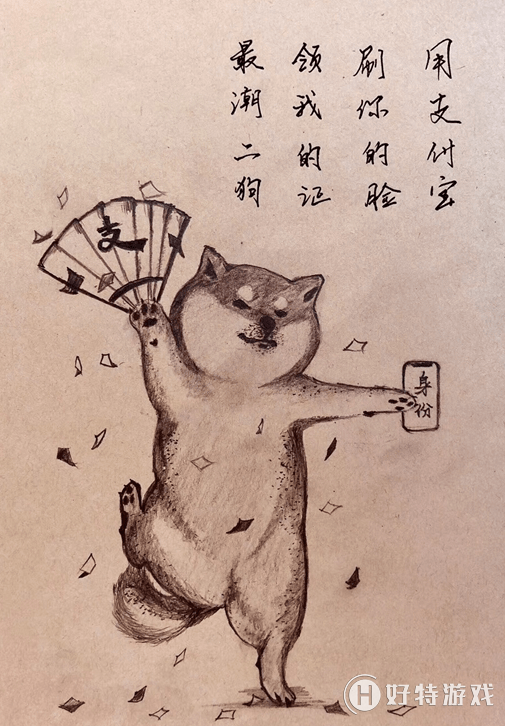 用支付宝
刷你的脸
领我的证
最潮二狗
支
身份
好特游戏